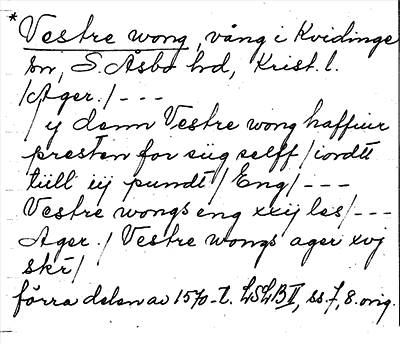 * Vestre wong, vång i Kvidinge
sn, S. Åsbo hd, Krist. l.
/Ager./ - - -
/ ij denn Vestre wong haffuer
presten for siig selff / iordtt
tiill iij pundt / Eng / - - -
Vestre wongs eng xxij les / - - -
Ager. / Vestre wongs ager xvj
skr /
förra delen av 1570-t. LSLB II, ss. 7, 8. orig.